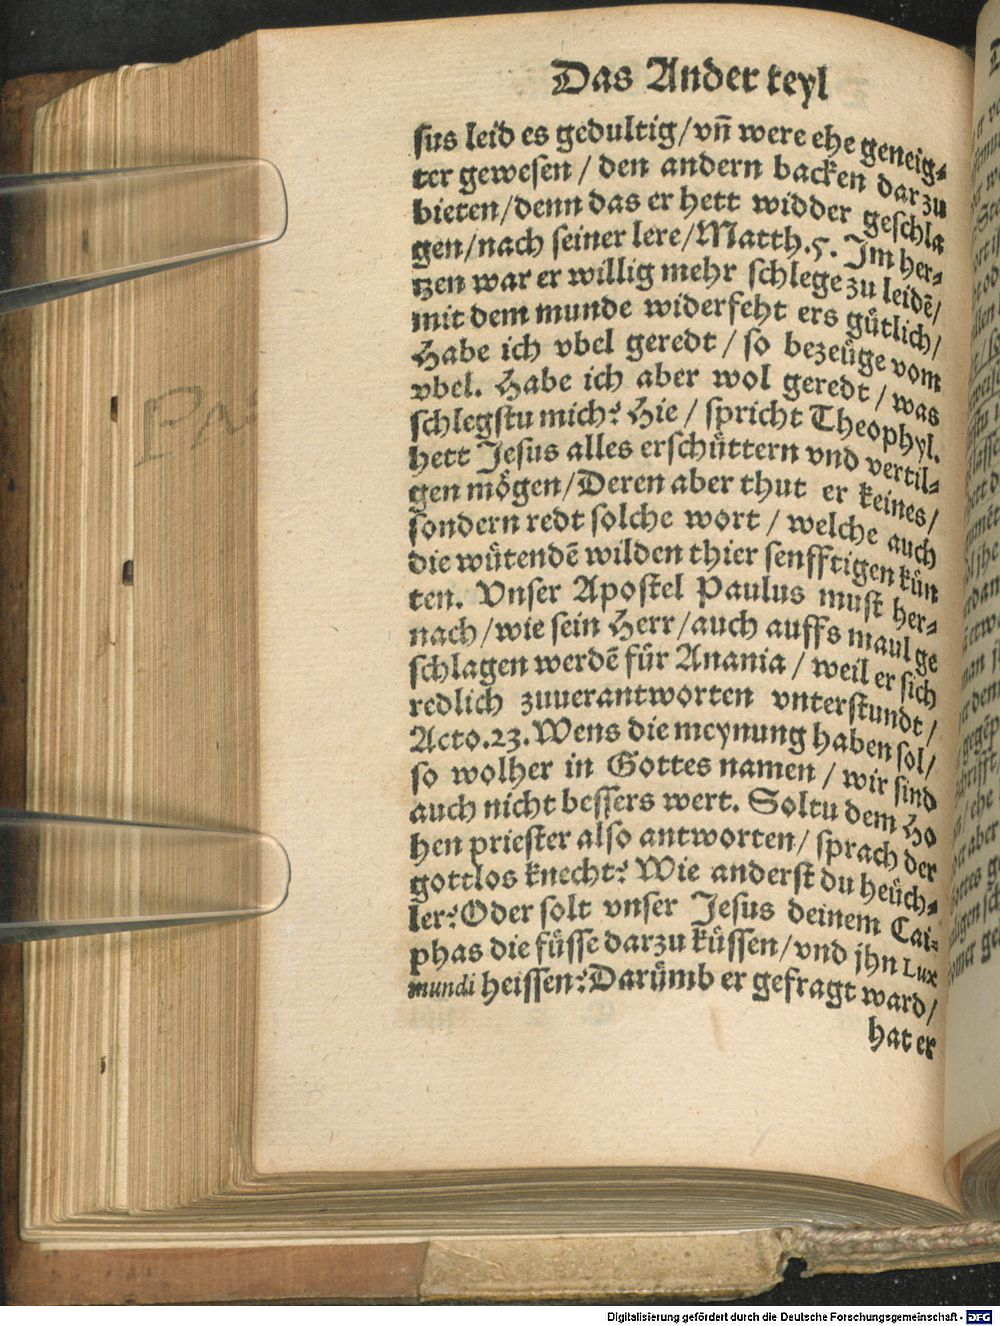 Das Ander teyl
sus leid es gedultig/vñ were ehe geneig-
ter gewesen / den andern backen dar zu
bieten/denn das er hett widder geschla
gen/nach seiner lere/Matth.5. Im her-
tzen war er willig mehr schlege zu leidē/
mit dem munde widerfeht ers gůtlich/
Habe ich vbel geredt / so bezeůge vom
vbel. Habe ich aber wol geredt / was
schlegstu mich? Hie / spricht Theophyl.
hett Jesus alles erschůttern vnd vertil-
gen mögen/Deren aber thut er keines/
sondern redt solche wort / welche auch
die wůtendē wilden thier senfftigen kůn
ten. Vnser Apostel Paulus must her-
nach/wie sein Herr/auch auffs maul ge
schlagen werdē fůr Anania / weil er sich
redlich zuuerantworten vnterstundt/
Acto.23. Wens die meynung haben sol/
so wolher in Gottes namen / wir sind
auch nicht bessers wert. Soltu dem Ho
hen priester also antworten/ sprach der
gottlos knecht? Wie anderst du heůch-
ler? Oder solt vnser Jesus deinem Cai-
phas die fůsse darzu kůssen/vnd jhn Lux
mundi heissen? Darůmb er gefragt ward/
hat er
Digitalisierung gefördert durch die Deutsche Forschungsgemeinschaft - DFG